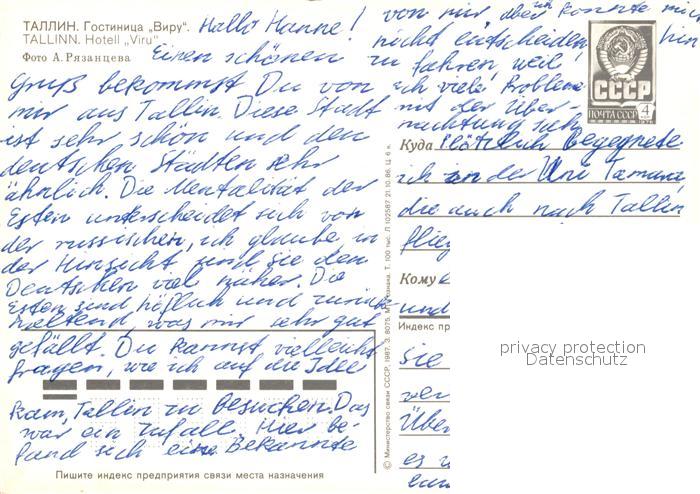 ТАЛЛИН. Гостиница „Виру“.
TALLINN. Hotell „Viru“
Фото А. Рязанцева
Hallo Hanne!
Einen schönen
Gruß bekommst Du von
mir aus Tallin. Diese Stadt
ist sehr schön und den
deutschen Städten sehr
ähnlich. Die Mentalität der
Esten unterscheidet sich von
der russischen, ich glaube in
der Hinsicht sind sie den
Deutschen viel näher. Die
Esten sind höflich und zurück-
haltend, was mir sehr gut
gefällt. Du kannst vielleicht
fragen, wie ich auf die Idee
kam, Tallin zu besuchen. Das
war ein Zufall. Hier be-
fand sich eine Bekannte
Пишите индекс предприятия связи места назначения
© Министерство связи СССР, 1987. З. 8075. М. Гознака. Т. 100 тыс. Л 102587 21.10.86. Ц. 6 к.
von mir, aber ich konnte mich
nicht entscheiden, hin
zu fahren, weil
ich viele Probleme
mit der Über-
nachtung habe
Куда Plötzlich begegnete
ich an der Uni Tamara,
die auch nach Tallin
flieg
Кому
und
Индекс пре
sie
ver
Über
es
СССР
ПОЧТА СССР
4
1976
privacy protection
Datenschutz